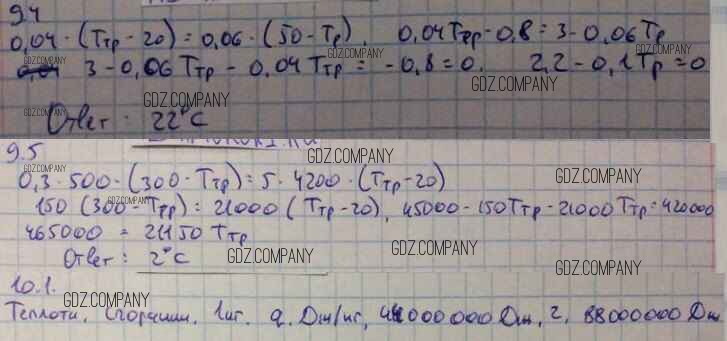 9.4
0,04 · (Tтр - 20) = 0,06 · (50 - Tр), 0,04 Tтр - 0,8 = 3 - 0,06 Tр
3 - 0,06 Tтр - 0,04 Tтр = -0,8 = 0. 2,2 - 0,1 Tр = 0
Ответ: 22°C
9.5
0,3 · 500 · (300 - Tтр) = 5 · 4200 · (Tтр - 20)
150 (300 - Tтр) = 21000 (Tтр - 20), 45000 - 150 Tтр - 21000 Tтр = 420000
465000 = 21150 Tтр
Ответ: 2°C
10.1.
Теплоты, сгорании. 1 кг. q. Дж/кг, 44000000 Дж, 2, 88000000 Дж
GDZ.COMPANY
GDZ.COMPANY
GDZ.COMPANY
GDZ.COMPANY
GDZ.COMPANY
GDZ.COMPANY
GDZ.COMPANY
GDZ.COMPANY
GDZ.COMPANY
GDZ.COMPANY
GDZ.COMPANY
GDZ.COMPANY
GDZ.COMPANY
GDZ.COMPANY